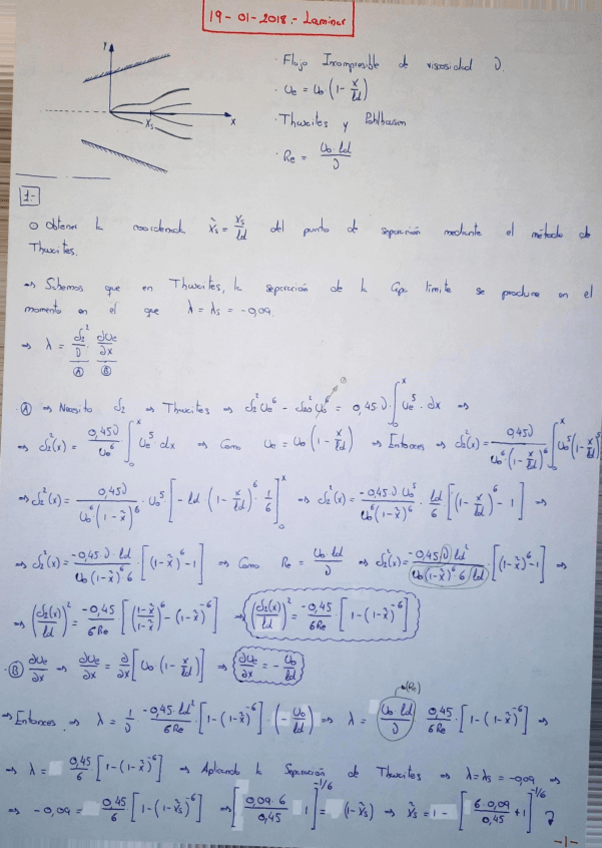 19-01-2018.- Laminar
Y
Xs
x
· Flujo Incompresible de viscosidad ν
· Ue = U0 (1 - x/ld)
· Thwaites y Pohlhausen
· Re = U0 · ld / ν
1.-
○ Obtener la coordenada x̂s = xs/ld del punto de separación mediante el método de
Thwaites.
⇒ Sabemos que en Thwaites, la separación de la Capa límite se produce en el
momento en el que λ = λs = -0,09.
⇒ λ = δ2²/ν · ∂Ue/∂x
Ⓐ Ⓑ
Ⓐ ⇒ Necesito δ2 ⇒ Thwaites ⇒ δ2² Ue⁶ - δ20² U0⁶ = 0,45 ν ∫₀ˣ Ue⁵ · dx ⇒
⇒ δ2²(x) = 0,45ν/Ue⁶ ∫₀ˣ Ue⁵ dx ⇒ Como Ue = U0 (1 - x/ld) ⇒ Entonces ⇒ δ2²(x) = 0,45ν / U0⁶ · (1 - x/ld)⁶ ∫₀ˣ U0⁵ (1 - x/ld)⁵
⇒ δ2²(x) = 0,45ν / U0⁶ (1 - x̂)⁶ · U0⁵ [- ld · (1 - x/ld)⁶ · 1/6]₀ˣ ⇒ δ2²(x) = -0,45 ν U0⁵ / U0⁶ (1 - x̂)⁶ · ld/6 [(1 - x/ld)⁶ - 1] ⇒
⇒ δ2²(x) = -0,45 · ν · ld / U0 (1 - x̂)⁶ 6 · [(1 - x̂)⁶ - 1] ⇒ Como Re = U0 · ld / ν ⇒ δ2²(x) = -0,45 ν ld² / U0 (1 - x̂)⁶ · 6 ld [(1 - x̂)⁶ - 1] ⇒
⇒ (δ2(x)/ld)² = -0,45/6Re [(1 - x̂ / 1 - x̂)⁶ - (1 - x̂)⁻⁶] ⇒ (δ2(x)/ld)² = -0,45/6Re [1 - (1 - x̂)⁻⁶]
· Ⓑ ∂Ue/∂x ⇒ ∂Ue/∂x = ∂/∂x [U0 (1 - x/ld)] ⇒ ∂Ue/∂x = - U0/ld
(Re)
⇒ Entonces ⇒ λ = 1/ν · -0,45 · ld² / 6Re · [1 - (1 - x̂)⁻⁶] · (- U0/ld) ⇒ λ = U0 · ld / ν · 0,45/6Re · [1 - (1 - x̂)⁻⁶] ⇒
⇒ λ = 0,45/6 [1 - (1 - x̂)⁻⁶] ⇒ Aplicando la Separación de Thwaites ⇒ λ = λs = -0,09 ⇒
⇒ -0,09 = 0,45/6 [1 - (1 - x̂s)⁻⁶] ⇒ [0,09 · 6 / 0,45 1]^-1/6 = (1 - x̂s) ⇒ x̂s = 1 - [6 · 0,09 / 0,45 + 1]^-1/6
-1-